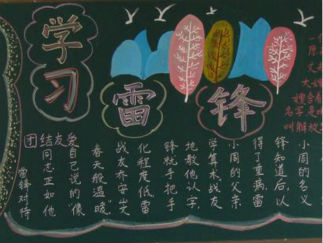 学习
雷锋
团结友爱
雷锋对待
同志正如他
自己说的“像
春天般温暖”
战友乔安山文
化程度低雷
锋就手把手
地教他认字，
学算术战友
小周的父亲
得了重病，雷
锋知道后，以
小周的名义